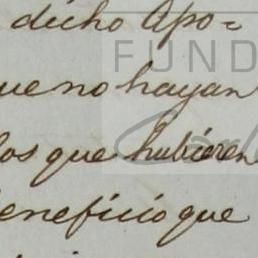 dicho Apo=
ue no hayan
los que hubieren
eneficio que
FUND